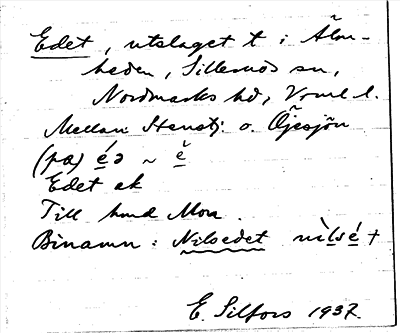 Edet, utslaget t i Älm-
heden, Sillerud sn,
Nordmarks hd, Vrml l.
Mellan Stensj. o. Öjesjön
(på) é ~ ě
Edet ek
Till hmd Mon.
Binamn: Nilsedet nìlsé +
E. Silfors 1937.